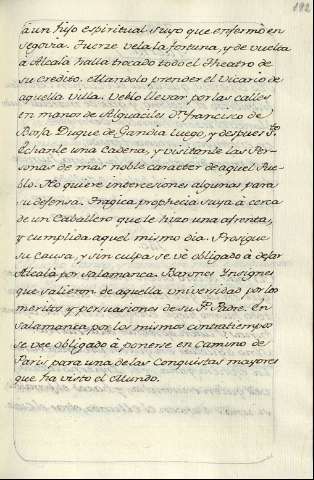 192
à un hijo espiritual suyo que enfermò en
Segovia. Tuerze vela la fortuna, y de vuelta
à Alcalà halla trocado todo el Theatro de
su credito. Mandolo prender el Vicario de
aquella Villa. Veblo llevar por las calles
en manos de Alguaciles Dn. Francisco de
Borja Duque de Gandia luego, y despues Sto.
Echanle una Cadena, y visitanle las Per-
sonas de mas noble caracter de aquel Pue-
blo. No quiere intercesiones algunas para
su defensa. Tragica prophecia suya à cerca
de un Caballero que le hizo una afrenta,
y cumplida aquel mismo dia. Prosigue
su causa, y sin culpa se vè obligado à dejar
Alcalà por Salamanca. Varones Insignes
que salieron de aquella universidad por los
meritos y persuasiones de su Sto. Padre. En
Salamanca por los mismos contratiempos
se vee obligado à ponerse en camino de
Paris para una de las Conquistas mayores
que ha visto el Mundo.